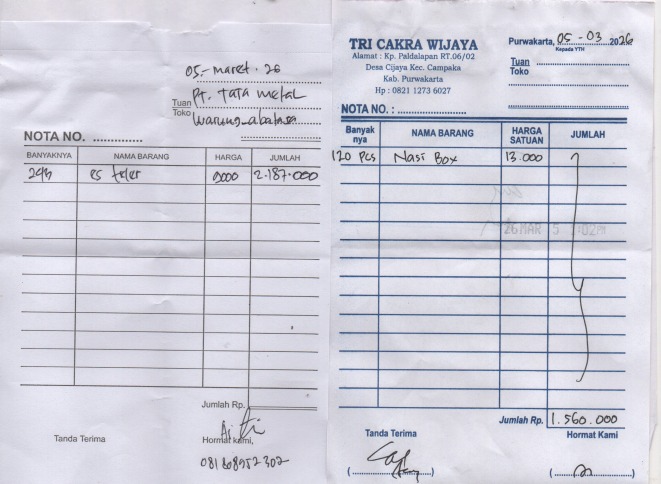 05-maret-26
Tuan PT. Tata metal
Toko warung abatasa
NOTA NO. ..............
BANYAKNYA NAMA BARANG HARGA JUMLAH
243 es teler 9000 2.187.000
Jumlah Rp.
Tanda Terima Hormat kami,
TRI CAKRA WIJAYA
Alamat : Kp. Paldalapan RT.06/02
Desa Cijaya Kec. Campaka
Kab. Purwakarta
Hp : 0821 1273 6027
Purwakarta, 05 - 03 2026
Kepada YTH
Tuan
Toko
NOTA NO. : ..................
Banyak nya NAMA BARANG HARGA SATUAN JUMLAH
120 Pcs Nasi Box 13.000
26 MAR 5 :02PM
Jumlah Rp. 1.560.000
Tanda Terima Hormat Kami